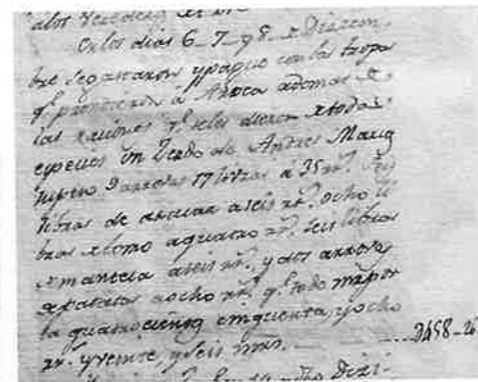 En los dias 6_7_y 8_ de Diziem.
bre se gastaron y pague con las tropas
q.e a Aroca ademas de
las raciones q.e se les dieron de todas
especies un Zerdo de Andres
9 arrovas 17 livras á 35 rr.s Seis
libras de azucar a seis rr.s ocho li
bras de lomo a quatro rr.s seis libras
de manteca a seis rr.s y dos arrovas
de patatas a ocho rr.s q.e todo impor
ta quatrocientos cinquenta, y ocho
rr.s y veinte, y seis mrs. ____ ....0458_26